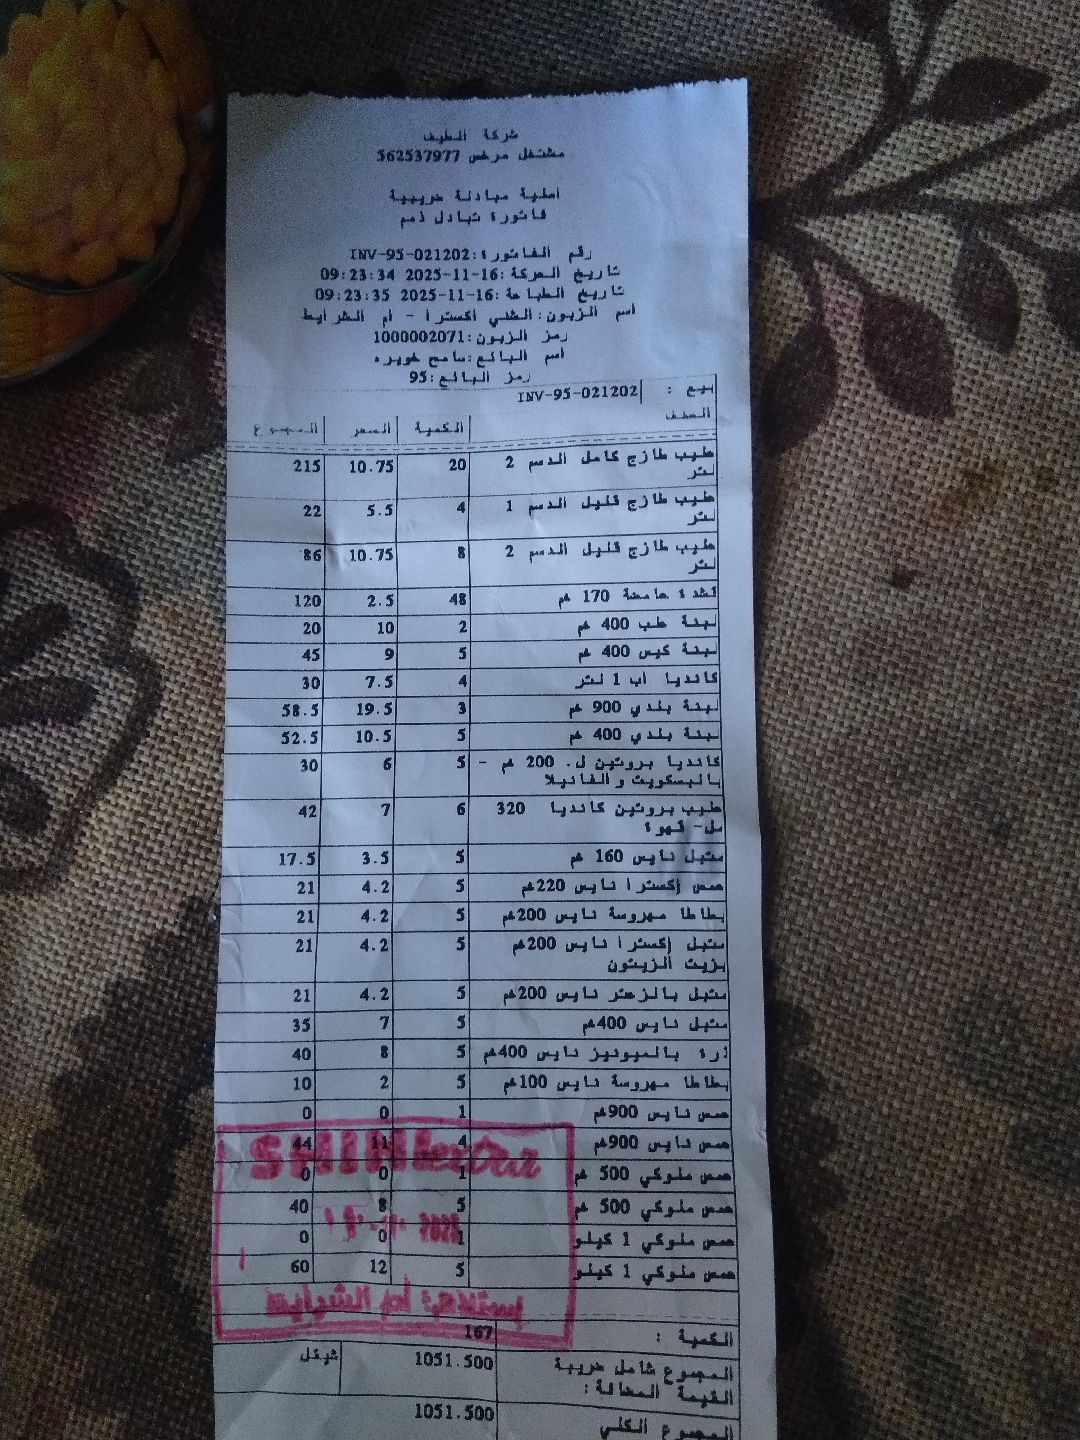 شركة الطيف
مشتغل مرخص 562537977
اصلية مبادلة ضريبية
فاتورة تبادل ذمم
رقم الفاتورة: INV-95-021202
تاريخ الحركة: 16-11-2025 09:23:34
تاريخ الطباعة: 16-11-2025 09:23:35
اسم الزبون: الشني اكسترا - ام الشرايط
رمز الزبون: 1000002071
اسم البائع: سامح خويره
رمز البائع: 95
بيع : INV-95-021202
الصنف الكمية السعر المجموع
حليب طازج كامل الدسم 2 لتر 20 10.75 215
حليب طازج قليل الدسم 1 لتر 4 5.5 22
حليب طازج قليل الدسم 2 لتر 8 10.75 86
قشدة حامضة 170 غم 48 2.5 120
لبنة علب 400 غم 2 10 20
لبنة كيس 400 غم 5 9 45
كانديا أب 1 لتر 4 7.5 30
لبنة بلدي 900 غم 3 19.5 58.5
لبنة بلدي 400 غم 5 10.5 52.5
كانديا بروتين ل. 200 غم - بالبسكويت و الفانيلا 5 6 30
حليب بروتين كانديا 320 مل- قهوة 6 7 42
متبل نايس 160 غم 5 3.5 17.5
حمص إكسترا نايس 220غم 5 4.2 21
بطاطا مهروسة نايس 200غم 5 4.2 21
متبل إكسترا نايس 200غم بزيت الزيتون 5 4.2 21
متبل بالزعتر نايس 200غم 5 4.2 21
متبل نايس 400غم 5 7 35
ذرة بالميونيز نايس 400غم 5 8 40
بطاطا مهروسة نايس 100غم 5 2 10
حمص نايس 900غم 1 0 0
حمص نايس 900غم 4 11 44
حمص ملوكي 500 غم 1 0 0
حمص ملوكي 500 غم 5 8 40
حمص ملوكي 1 كيلو 1 0 0
حمص ملوكي 1 كيلو 5 12 60
الكمية : 167
المجموع شامل ضريبة القيمة المضافة: 1051.500 شيقل
المجموع الكلي 1051.500